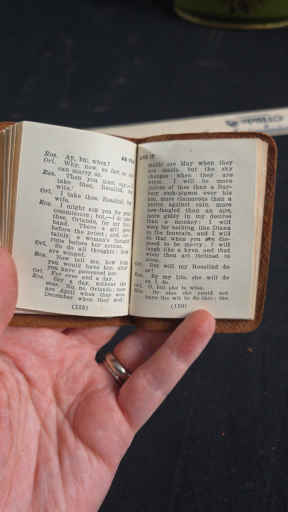 Ros. Ay, but when?
Orl. Why, now; as fast as
can marry us.
Ros. Then you must say—I
take thee, Rosalind, for
wife.
Orl. I take thee, Rosalind, for
wife.
Ros. I might ask you for your
commission; but,—I do take
thee, Orlando, for my
band. There a girl goes
before the priest; and,
tainly, a woman's thought
runs before her action.
Orl. So do all thoughts; they
are winged.
Ros. Now tell me, how long
you would have her, after
you have possessed her.
Orl. For ever and a day.
Ros. Say a day, without the
ever. No, no, Orlando; men
are April when they woo,
December when they wed:
(158)
AS YOU
LIKE IT
maids are May when they
are maids, but the sky
changes when they are
wives. I will be more
jealous of thee than a Bar-
bary cock-pigeon over his
hen; more clamorous than a
parrot against rain; more
new-fangled than an ape;
more giddy in my desires
than a monkey: I will
weep for nothing, like Diana
in the fountain, and I will
do that when you are dis-
posed to be merry; I will
laugh like a hyen, and that
when thou art inclined to
sleep.
Orl. But will my Rosalind do
so?
Ros. By my life, she will do
as I do.
Orl. O, but she is wise.
Ros. Or else she could not
have the wit to do this: the
(159)